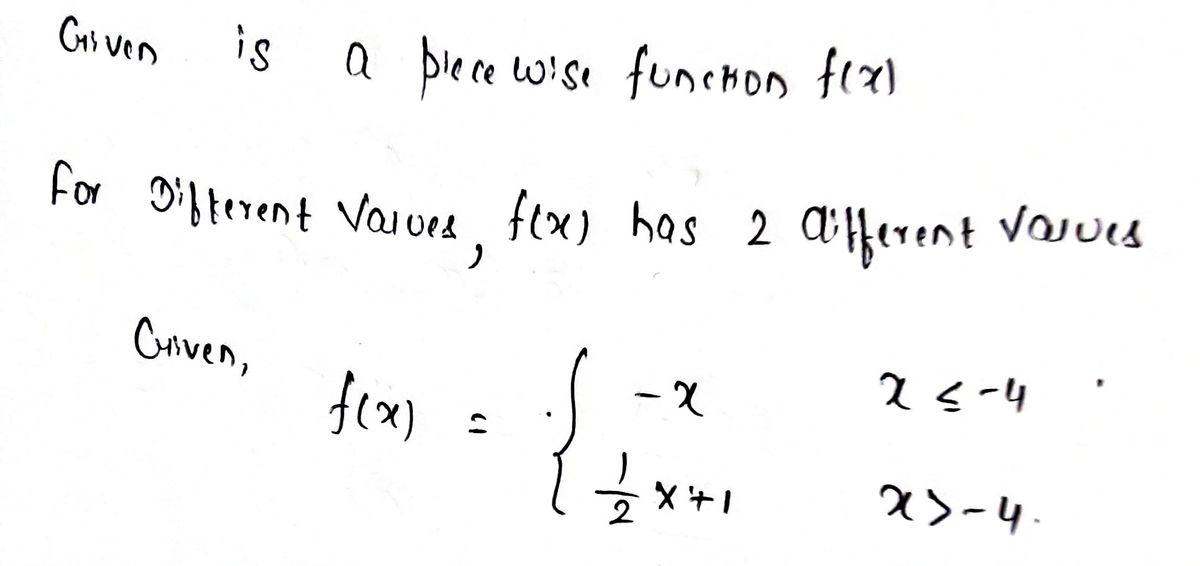 Given is a piece wise function f(x)
For Different Values, f(x) has 2 different values
Given,
f(x) = { -x x ≤ -4
1/2 x + 1 x > -4.